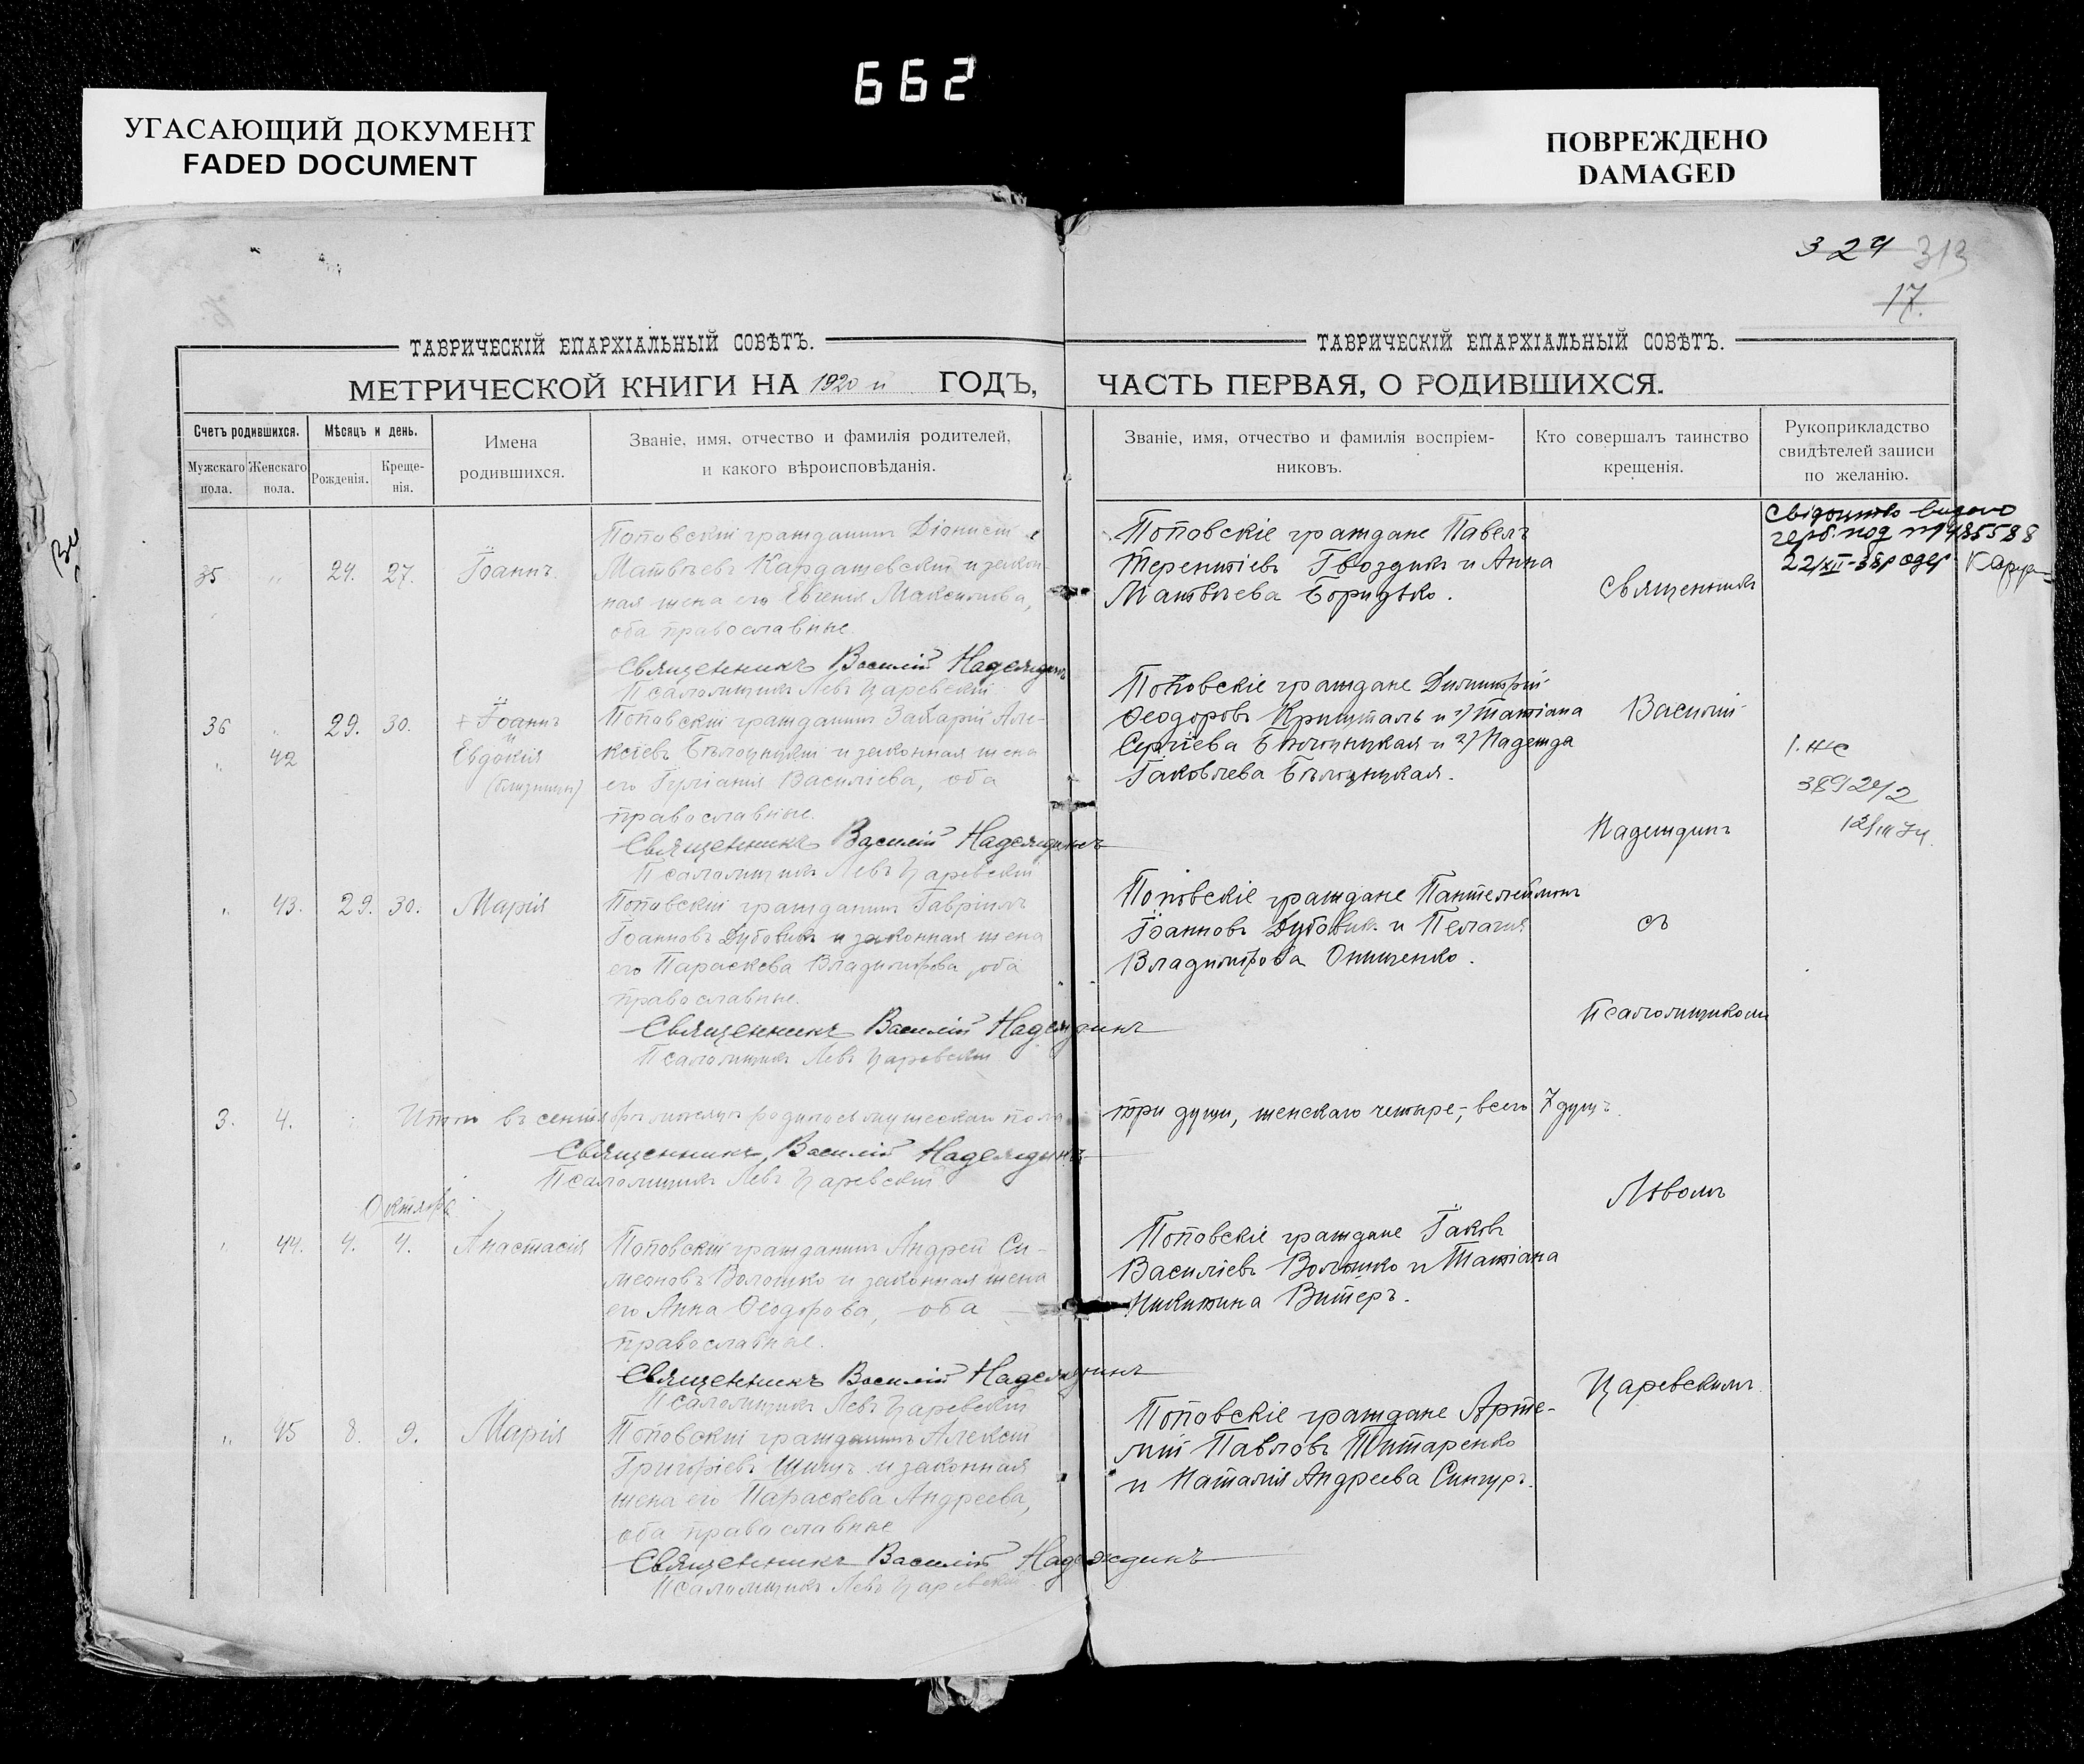 662
УГАСАЮЩИЙ ДОКУМЕНТ
FADED DOCUMENT
ПОВРЕЖДЕНО
DAMAGED
324 313
17.
ТАВРИЧЕСКІЙ ЕПАРХІАЛЬНЫЙ СОВѢТЪ.
МЕТРИЧЕСКОЙ КНИГИ НА 1920 й ГОДЪ,
Счетъ родившихся.
Мужскаго пола.
Женскаго пола.
Мѣсяцъ и день.
Рожденія.
Креще-
нія.
Имена
родившихся.
Званіе, имя, отчество и фамилія родителей,
и какого вѣроисповѣданія.
35 " 24. 27. Іоаннъ
Поповскій гражданинъ Діонисій
Матвѣевъ Кардашевскій и закон-
ная жена его Евгенія Максимова,
оба православные
Священникъ Василій Надеждинъ
Псаломщикъ Левъ Царевскій
36 " 29. 30. + Іоаннъ
и
" 42 Евдокія
(близнецы)
Поповскій гражданинъ Захарій Але-
ксѣевъ Бѣлоцкій и законная жена
его Іуліанія Василіева, оба
православные.
Священникъ Василій Надеждинъ
Псаломщикъ Левъ Царевскій
" 43. 29. 30. Марія
Поповскій гражданинъ Гавріилъ
Іоанновъ Дубовикъ и законная жена
его Параскева Владимірова, оба
православные.
Священникъ Василій Надеждинъ
Псаломщикъ Левъ Царевскій
3. 4. Итого въ сентябрѣ мѣсяцѣ родилось мужескаго пола
Священникъ Василій Надеждинъ
Псаломщикъ Левъ Царевскій
Октябрь
" 44. 4. 4. Анастасія
Поповскій гражданинъ Андрей Си-
меоновъ Волошко и законная жена
его Анна Ѳеодорова, оба
православные.
Священникъ Василій Надеждинъ
Псаломщикъ Левъ Царевскій
" 45 8. 9. Марія
Поповскій гражданинъ Алексій
Григоріевъ и законная
жена его Параскева Андреева,
оба православные
Священникъ Василій Надеждинъ
Псаломщикъ Левъ Царевскій
ТАВРИЧЕСКІЙ ЕПАРХІАЛЬНЫЙ СОВѢТЪ.
ЧАСТЬ ПЕРВАЯ, О РОДИВШИХСЯ.
Званіе, имя, отчество и фамилія воспріем-
никовъ.
Кто совершалъ таинство
крещенія.
Рукоприкладство
свидѣтелей записи
по желанію.
Поповскіе граждане Павелъ
Терентіевъ Гвоздикъ и Анна
Матвѣева Боридько.
Поповскіе граждане Димитрій
Ѳеодоровъ Кришталь и 1) Татіана
Сергіева Бѣлоцкая и 2) Надежда
Іаковлева Бѣлоцкая.
Поповскіе граждане Пантелеймонъ
Іоанновъ Дубовик. и Пелагія
Владимірова Онищенко.
три души, женскаго четыре, всего 7 душъ.
Поповскіе граждане Іаковъ
Василіевъ Волошко и Татіана
Никитина Витеръ.
Поповскіе граждане Арте-
мій Павловъ Титаренко
и Наталія Андреева Сингуръ.
Священникъ
Василій
Надеждинъ
съ
Псаломщикомъ
Львомъ
Царевскимъ.
Свідоцтво видано
герб. под №
22/XII-38р одер.
1. ЖС
389242
12/III 34.